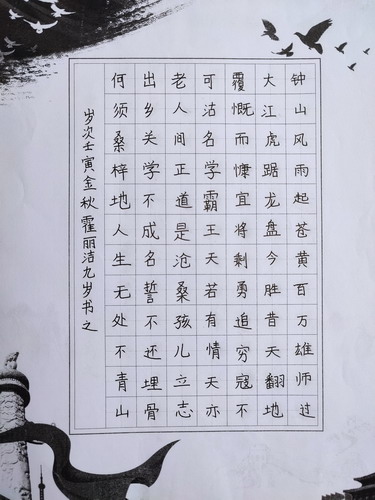 钟山风雨起苍黄百万雄师过
大江虎踞龙盘今胜昔天翻地
覆慨而慷宜将剩勇追穷寇不
可沽名学霸王天若有情天亦
老人间正道是沧桑孩儿立志
出乡关学不成名誓不还埋骨
何须桑梓地人生无处不青山
岁次壬寅金秋霍丽洁九岁书之